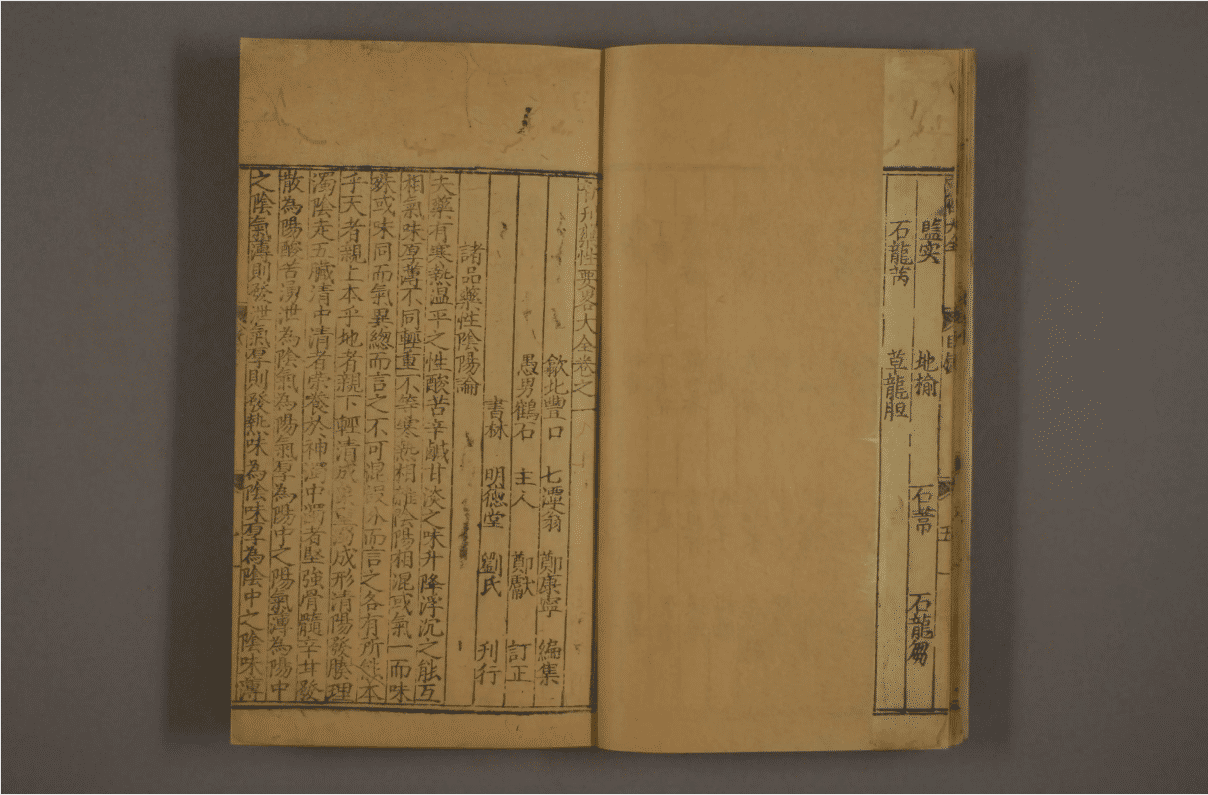 大全
目錄
五
藍实 地榆 石蒂 石龍芻
石龍芮 草龍胆
新刊藥性要畧大全卷之一
歙北豐口 七潭翁 鄭康寧 編集
愚男鶴石 主人 鄭獻 訂正
書林 明德堂 劉氏 刊行
諸品藥性陰陽論
夫藥有寒熱温平之性酸苦辛鹹甘淡之味升降浮沉之能互
相氣味厚薄不同輕重不等寒熱相雜陰陽相混或氣一而味
殊或味同而氣異緫而言之不可混 分而言之各有所能本
乎天者親上本乎地者親下輕清成 成形清陽發腠理
濁陰走五臓清中清者荣養於神濁中濁者堅強骨髓辛甘發
散為陽酸苦湧泄為陰氣為陽氣厚為陽中之陽氣薄為陽中
之陰氣薄則發泄氣厚則發熱味為陰味厚為陰中之陰味薄